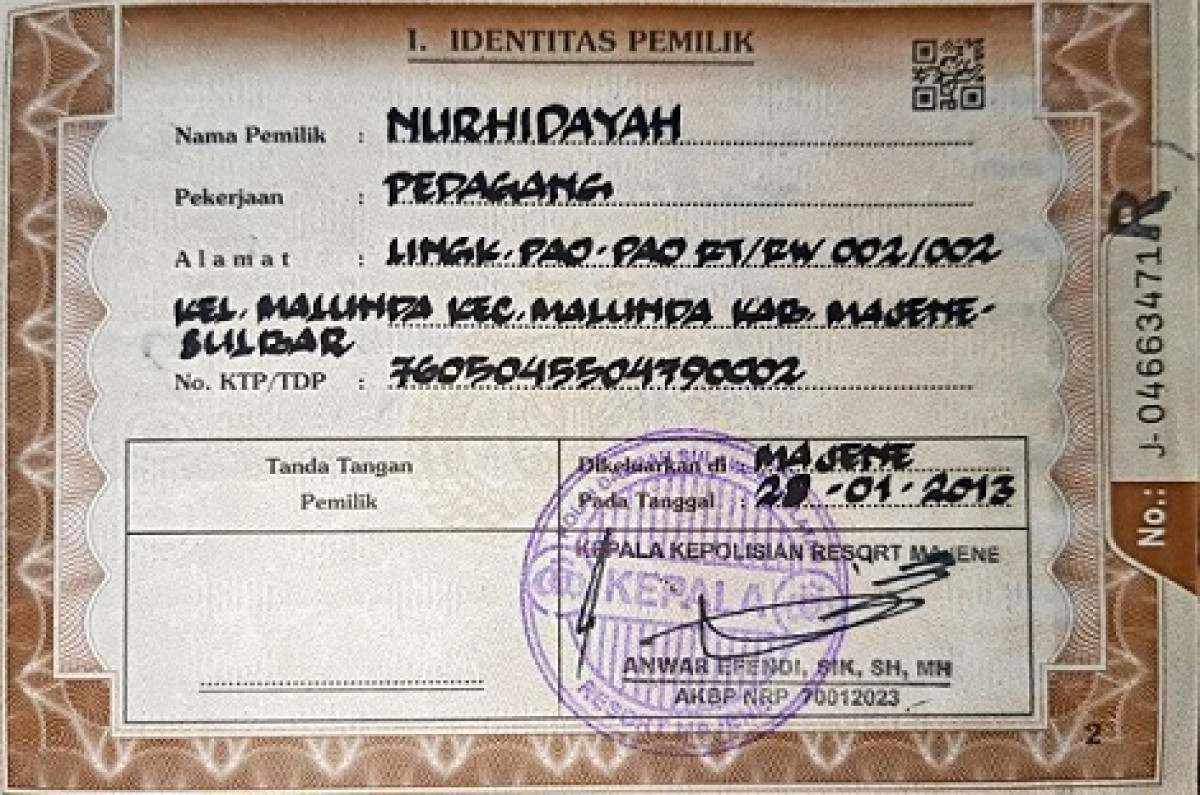 I. IDENTITAS PEMILIK
Nama Pemilik : NURHIDAYAH
Pekerjaan : PEDAGANG
Alamat : LINGK. PAO-PAO RT/RW 002/002
KEL. MALUNDA KEC. MALUNDA KAB. MAJENE-
SULBAR
No. KTP/TDP : 7605045504790002
Tanda Tangan
Pemilik
Dikeluarkan di : MAJENE
Pada Tanggal : 28-01-2013
KEPALA KEPOLISIAN RESORT MAJENE
KEPALA
RESORT MAJENE
ANWAR EFENDI, SIK, SH, MH
AKBP NRP 70012023
2
No.: J-04663471 R